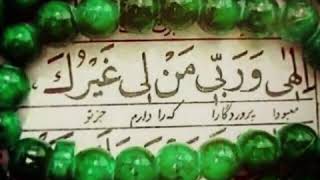 اِلٰهی وَ رَبّی مَنْ لی غَیْرُكَ،
معبودا پروردگارا که را دارم جز تو